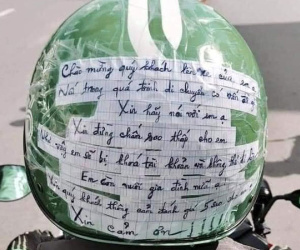 Chào mừng quý khách lên xe của em ạ
Nếu trong quá trình di chuyển có vấn đề gì
Xin hãy nói với em ạ
Xin đừng chấm sao thấp cho em
Như vậy em sẽ bị khoá tài khoản và không thể
Em còn nuôi gia đình nữa ạ
Xin quý khách thông cảm đánh giá 5 sao cho
Xin cảm ơn